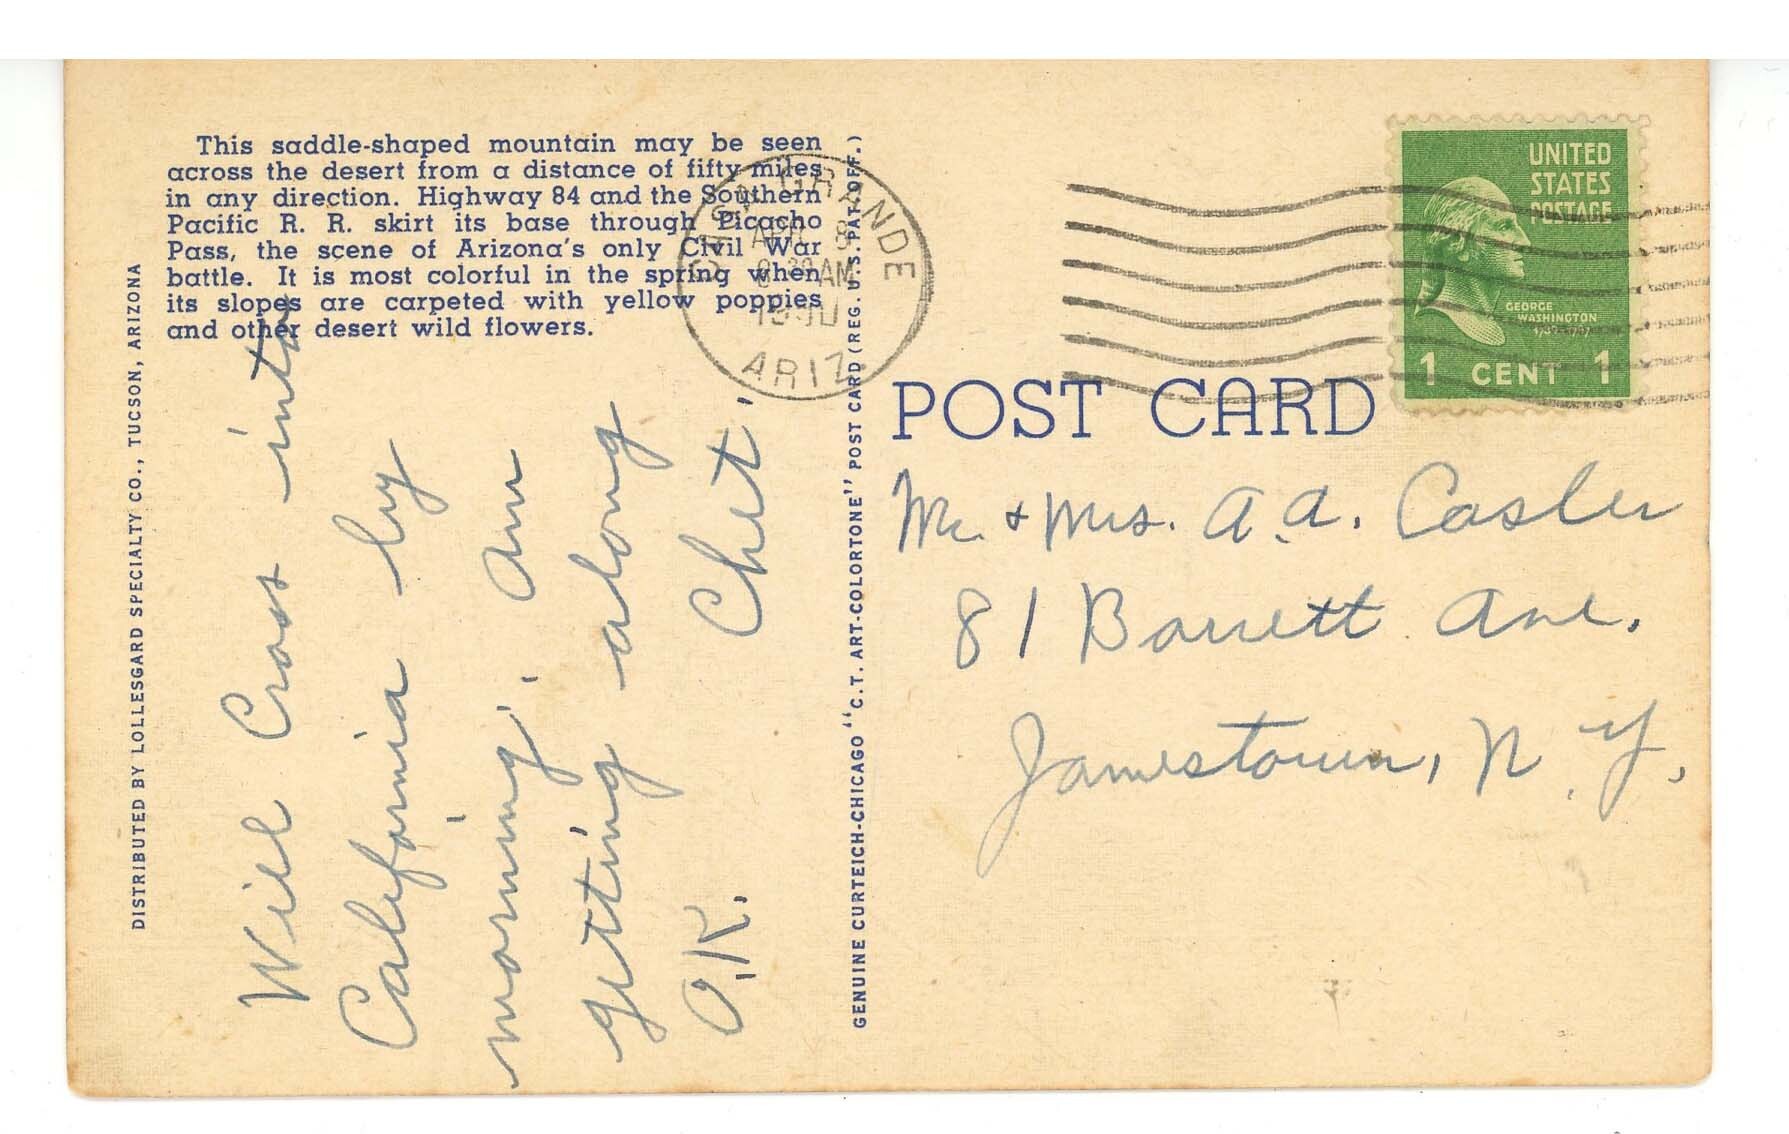 This saddle-shaped mountain may be seen
across the desert from a distance of fifty miles
in any direction. Highway 84 and the Southern
Pacific R. R. skirt its base through Picacho
Pass, the scene of Arizona's only Civil War
battle. It is most colorful in the spring when
its slopes are carpeted with yellow poppies
and other desert wild flowers.
DISTRIBUTED BY LOLLESGARD SPECIALTY CO., TUCSON, ARIZONA
Will Cross into
California by
morning. Am
getting along
O.K. Chet.
GENUINE CURTEICH-CHICAGO "C.T. ART-COLORTONE" POST CARD (REG. U.S. PAT. OFF.)
CASA GRANDE
APR 8
AM
ARIZ.
UNITED
STATES
POSTAGE
GEORGE
WASHINGTON
1 CENT 1
POST CARD
Mr. + Mrs. A. A. Casler
81 Barrett Ave.
Jamestown, N. Y.